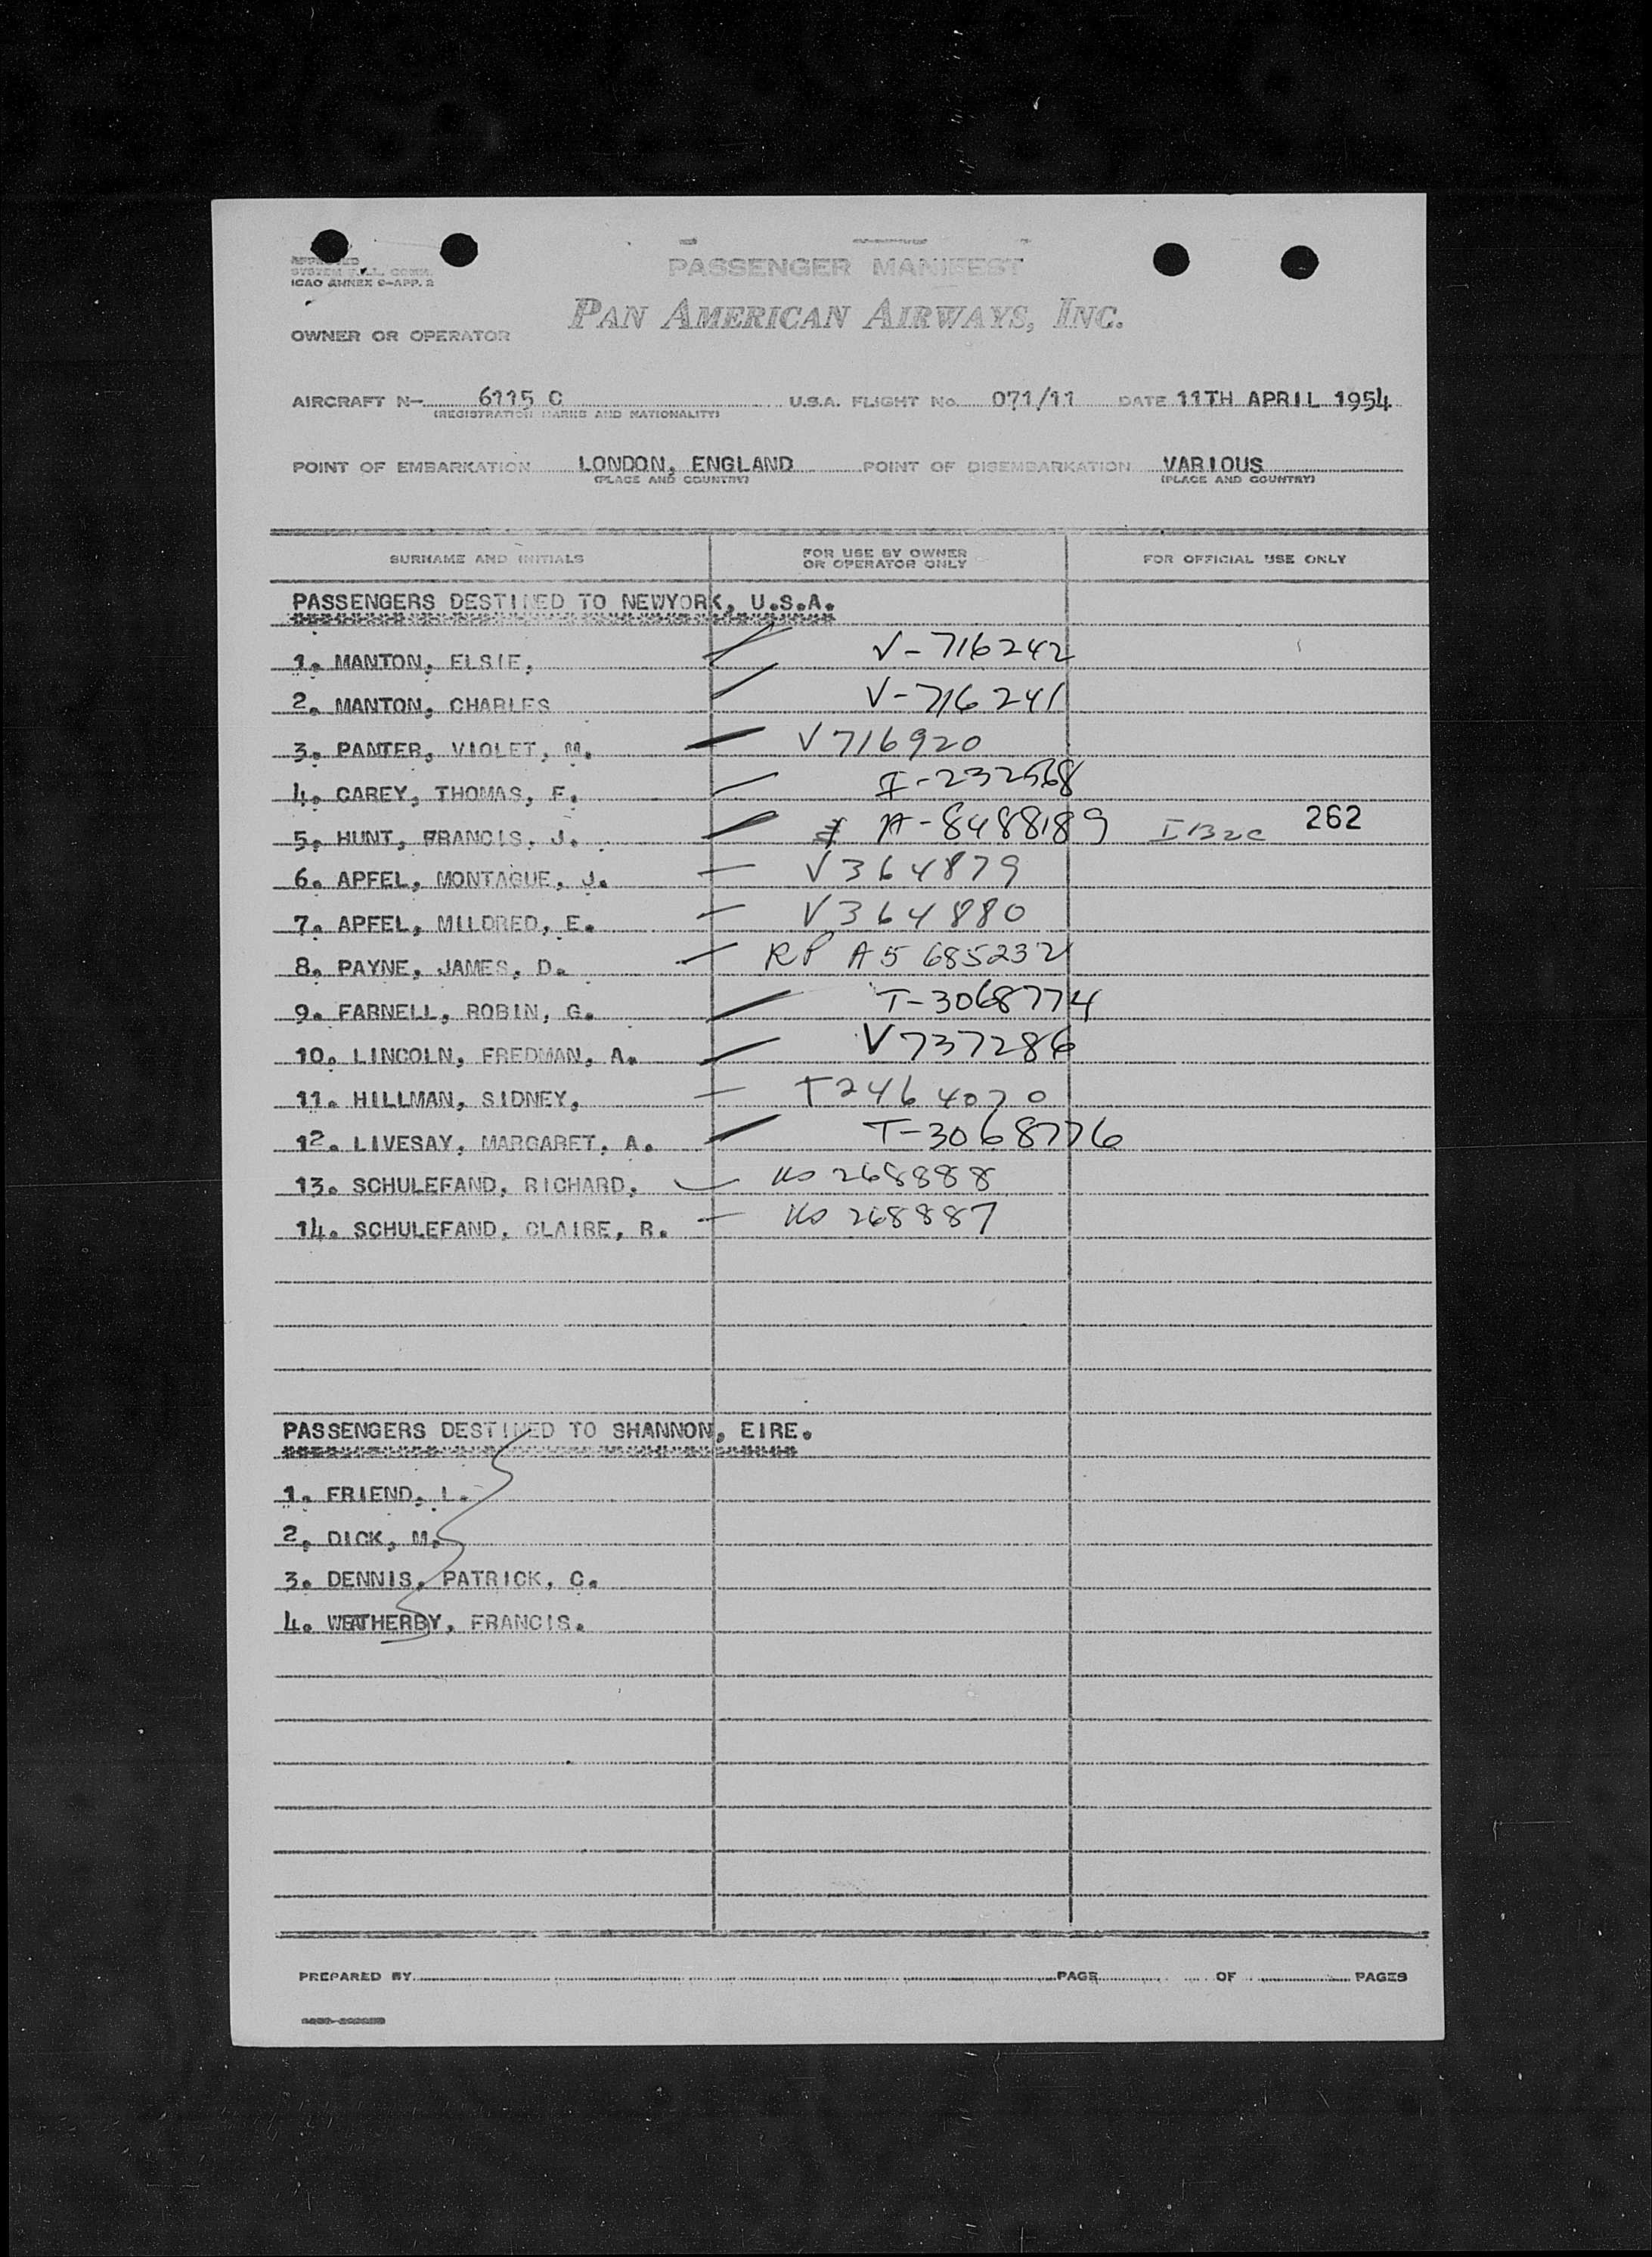 PASSENGER MANIFEST
APPROVED
SYSTEM
ICAO ANNEX 9-APP. 2
PAN AMERICAN AIRWAYS, INC.
OWNER OR OPERATOR
AIRCRAFT N- 6115 C U.S.A. FLIGHT No. 071/11 DATE 11TH APRIL 1954
(REGISTRATION MARKS AND NATIONALITY)
POINT OF EMBARKATION LONDON, ENGLAND POINT OF DISEMBARKATION VARIOUS
(PLACE AND COUNTRY) (PLACE AND COUNTRY)
SURNAME AND INITIALS FOR USE BY OWNER OR OPERATOR ONLY FOR OFFICIAL USE ONLY
PASSENGERS DESTINED TO NEWYORK, U.S.A.
1. MANTON, ELSIE, V-716242
2. MANTON, CHARLES V-716241
3. PANTER, VIOLET, M. V716920
4. CAREY, THOMAS, F. I-232568
5. HUNT, FRANCIS, J. A-8488189 262
6. APFEL, MONTAGUE, J. V364879
7. APFEL, MILDRED, E. V364880
8. PAYNE, JAMES, D. RP A5 685232
9. FARNELL, ROBIN, G. T-3068774
10. LINCOLN, FREDMAN, A. V737286
11. HILLMAN, SIDNEY, T2464070
12. LIVESAY, MARGARET, A. T-3068776
13. SCHULEFAND, RICHARD, US 268888
14. SCHULEFAND, CLAIRE, R. US 268887
PASSENGERS DESTINED TO SHANNON, EIRE.
1. FRIEND, L.
2. DICK, M.
3. DENNIS, PATRICK, C.
4. WEATHERBY, FRANCIS.
PREPARED BY PAGE OF PAGES